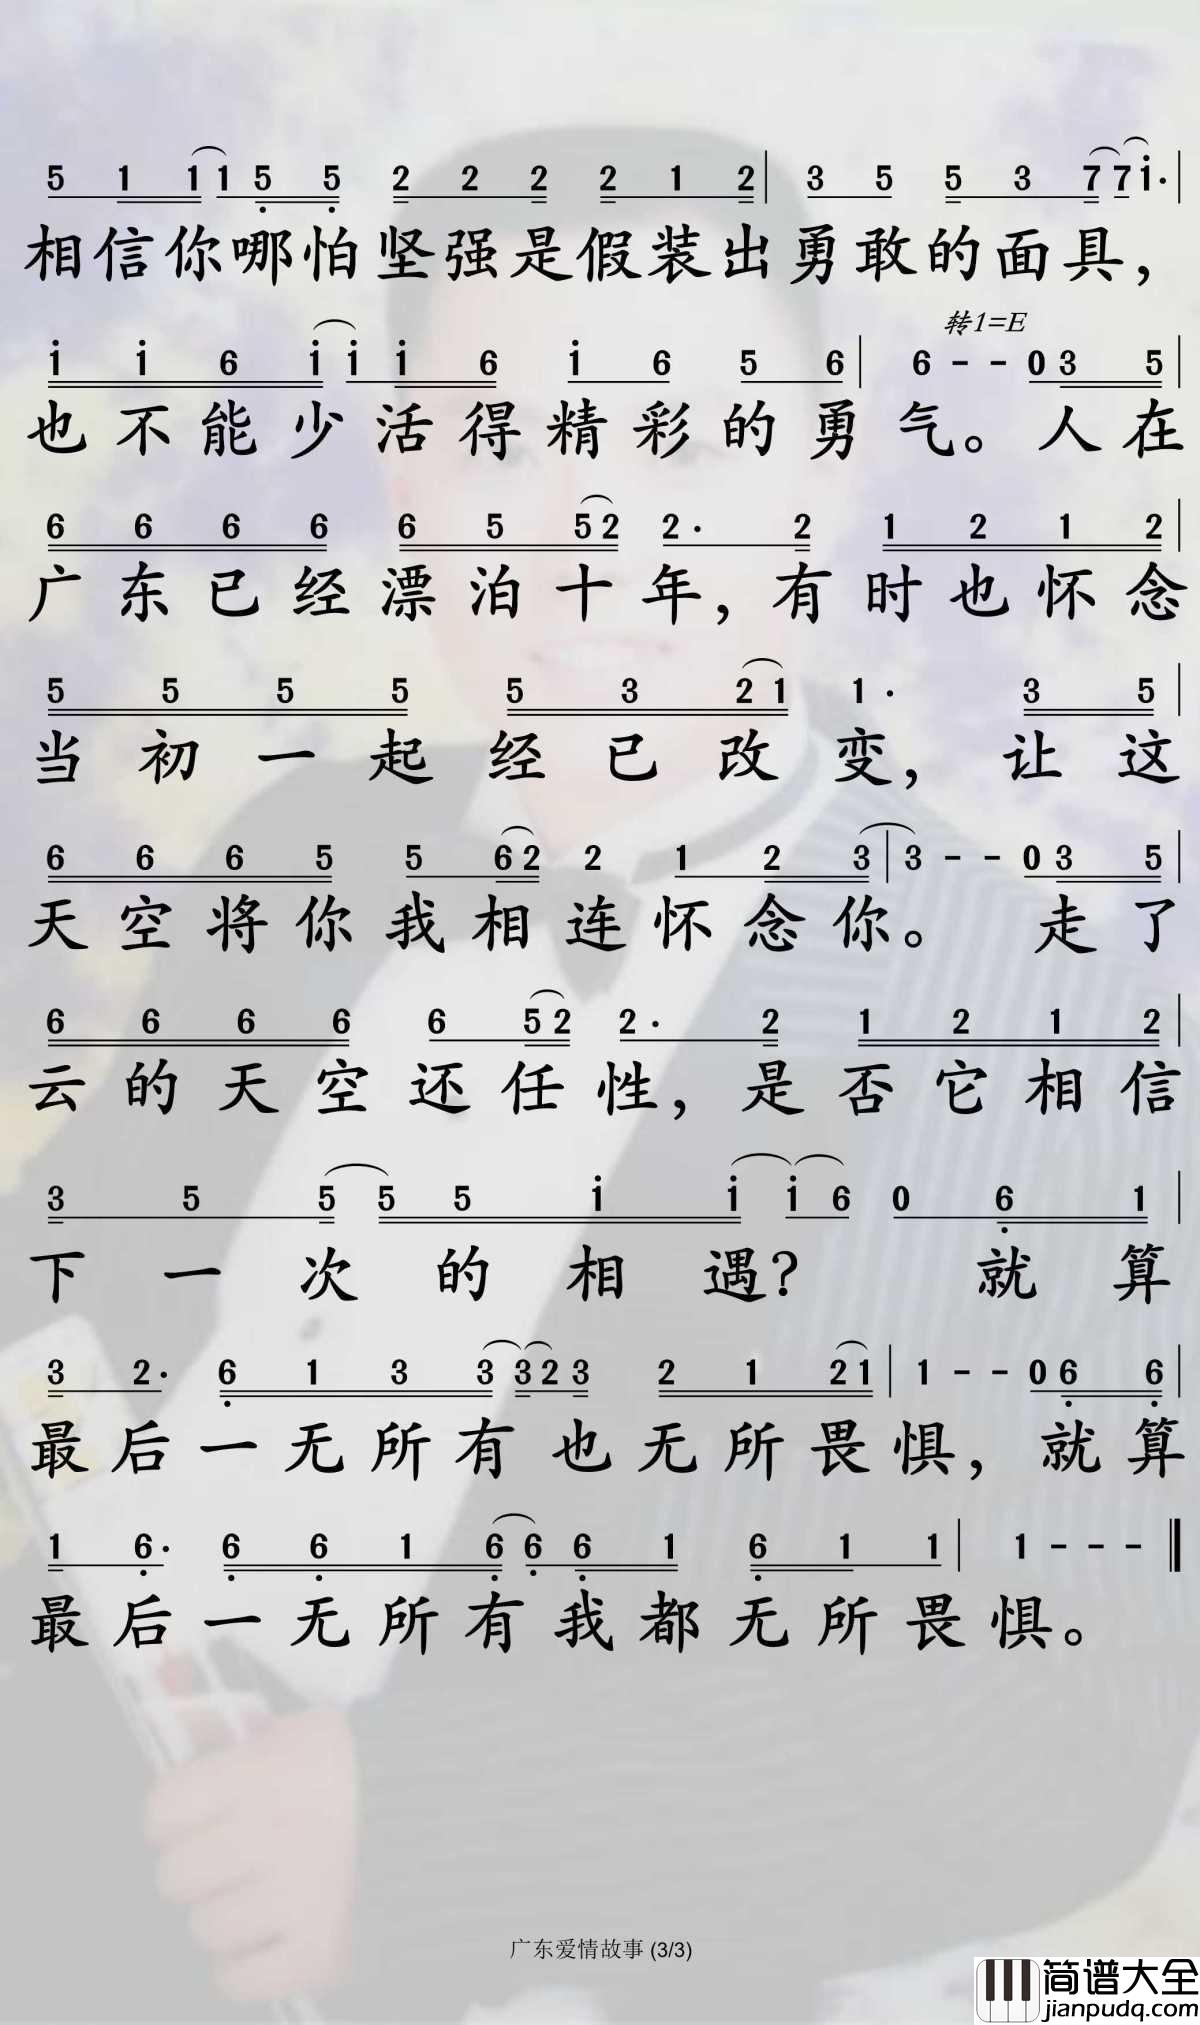 5 1 1 1 5 5 2 2 2 2 1 2 | 3 5 5 3 7 7 1· |
相信你哪怕坚强是假装出勇敢的面具，
转1=E
1 1 6 1 1 1 6 1 6 5 6 | 6 - - 0 3 5 |
也不能少活得精彩的勇气。人在
6 6 6 6 6 5 5 2 2· 2 1 2 1 2 |
广东已经漂泊十年，有时也怀念
5 5 5 5 5 3 2 1 1· 3 5 |
当初一起经已改变，让这
6 6 6 5 5 6 2 2 1 2 3 | 3 - - 0 3 5 |
天空将你我相连怀念你。走了
6 6 6 6 6 5 2 2· 2 1 2 1 2 |
云的天空还任性，是否它相信
3 5 5 5 5 1 1 1 6 0 6 1 |
下一次的相遇？就算
3 2· 6 1 3 3 3 2 3 2 1 2 1 | 1 - - 0 6 6 |
最后一无所有也无所畏惧，就算
1 6· 6 6 1 6 6 6 1 6 1 1 | 1 - - - ‖
最后一无所有我都无所畏惧。
广东爱情故事 (3/3)
简谱大全
jianpudq.com